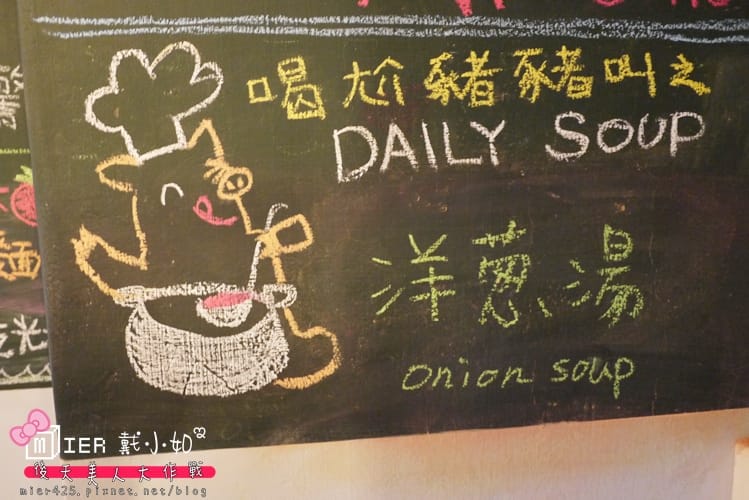 喝尬豬豬叫之
DAILY SOUP
洋蔥湯
onion soup
麵
MIER 戴小如
後天美人大作戰
mier425.pixnet.net/blog